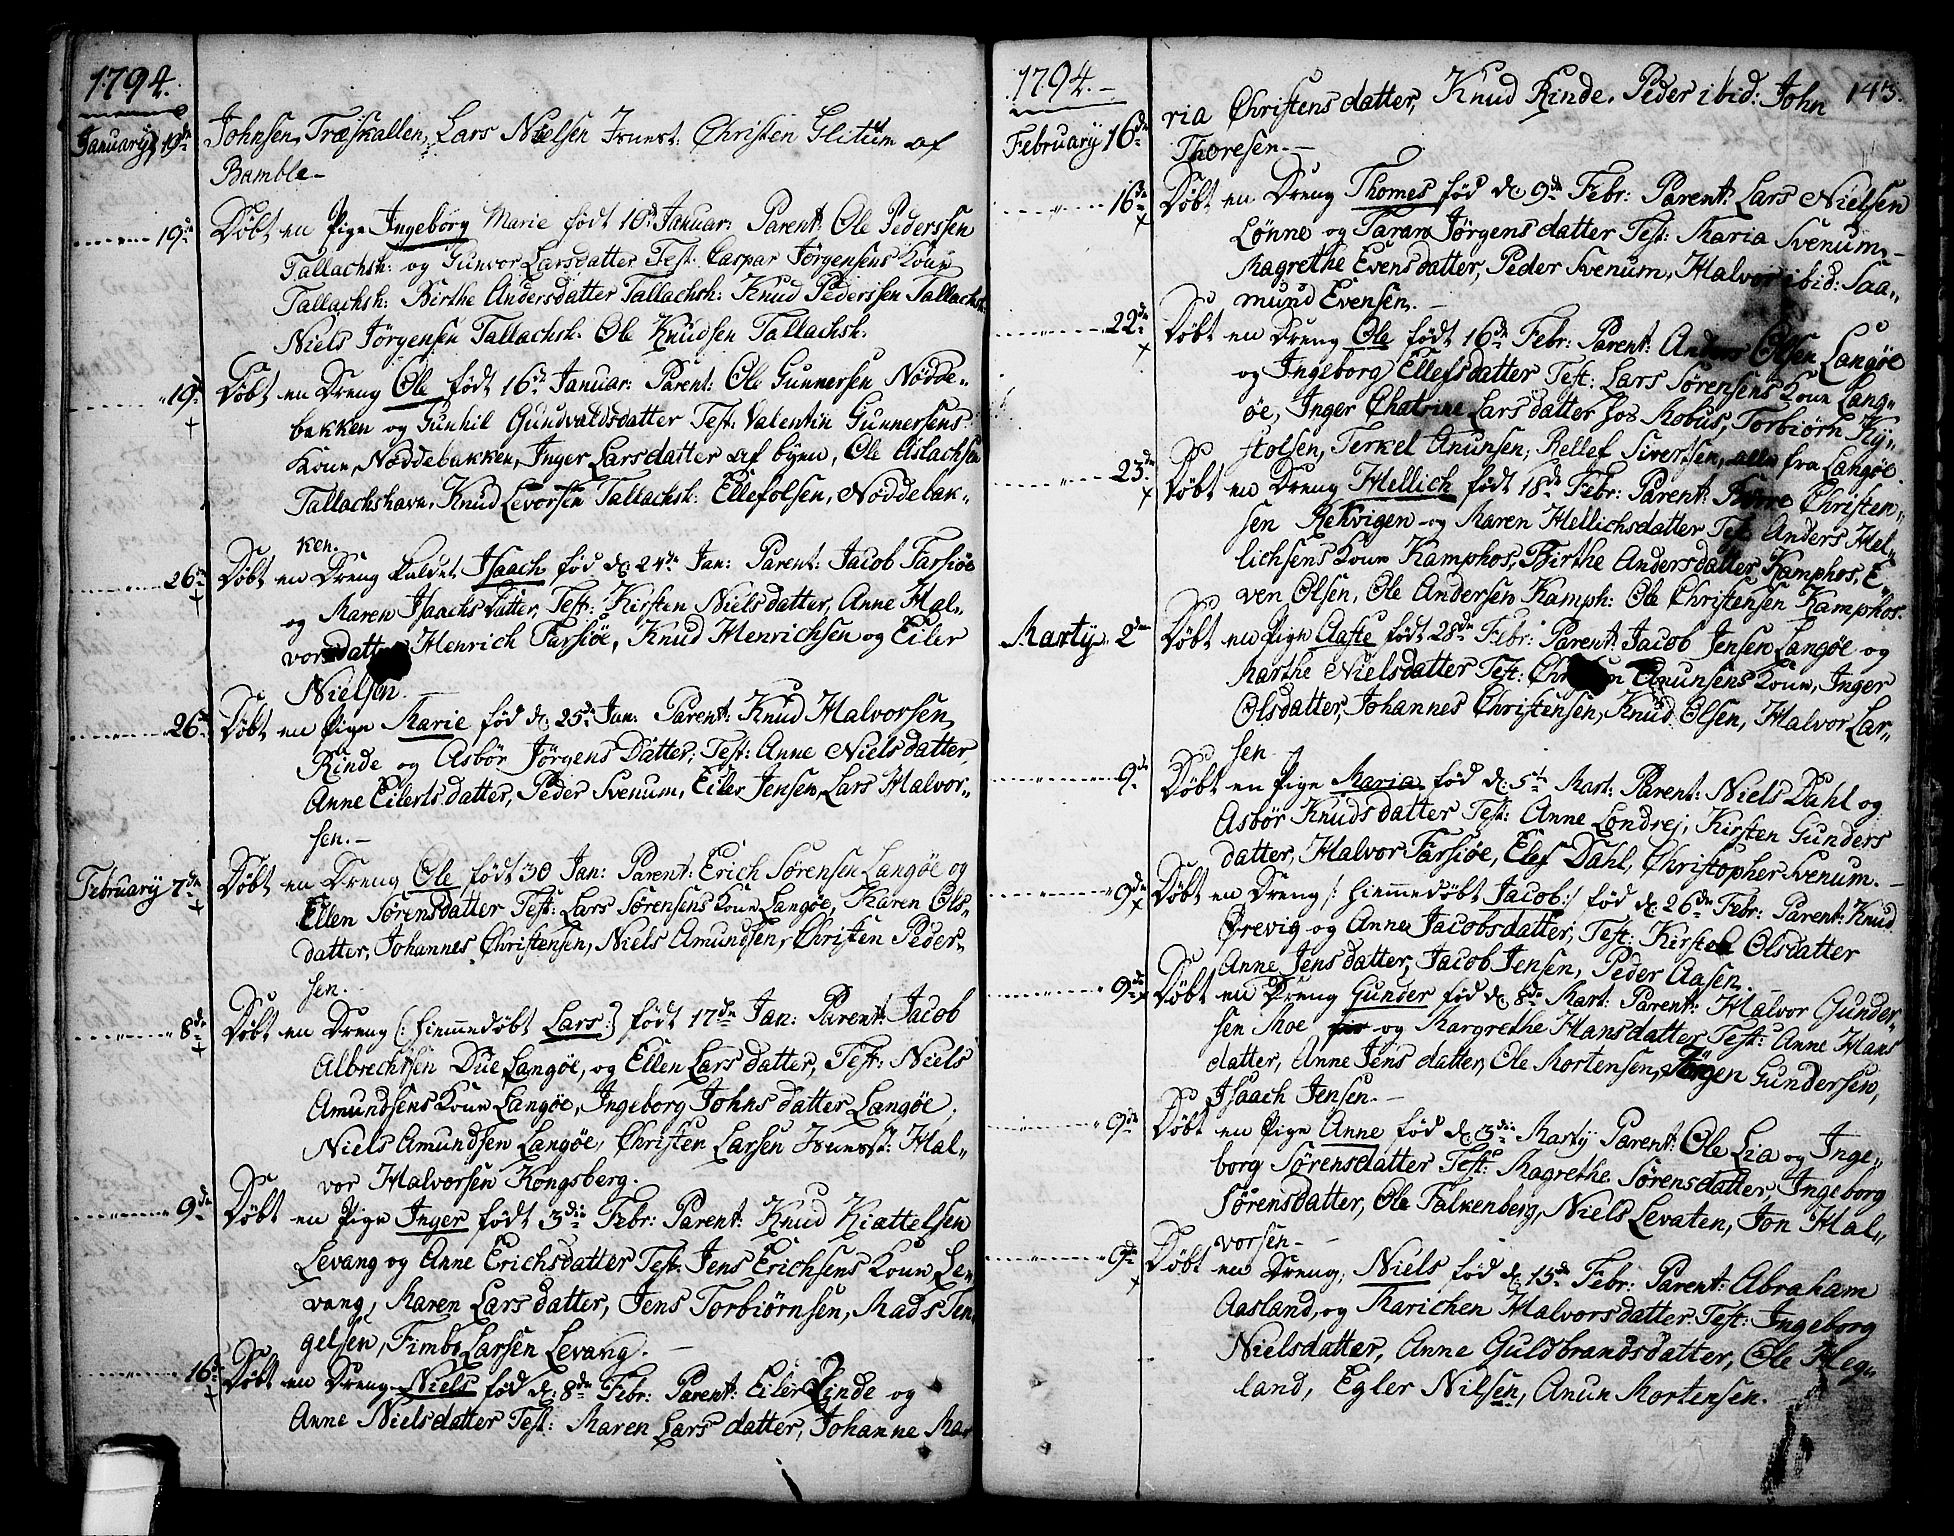 1794.
Januarÿ 19de Johnsen, Træskallen, Lars Nielsen Christen Glitum af
Bamble.
19de Døbt en Pige Ingeborg Marie født 10de Januar: Parent: Ole Pederssen
Tallachsh: og Gunvor Larsdatter Test: Caspar Jørgensens Kone
Tallachsh: Birthe Andersdatter Tallachsh: Knud Pederssen Tallachsh:
Niels Jörgensen Tallachsh. Ole Knudsen Tallachsh.
19de Døbt en Dreng Ole født 16de Januar: Parent: Ole Gunnersen Nødde-
bakken og Gunhil Gundvaldsdatter Test: Valentin Gunnersens
Kone, Nøddebakken, Inger Larsdatter af byen, Ole Aslachsen
Tallachshavn, Knud Levorsen Tallachsh: Ellef olsen, Nøddebak-
ken.
26de Døbt en Dreng kaldet Isaach fød d: 24de Jan: Parent: Jacob Farsiøe
og Maren Isaachs Datter, Test: Kirsten Niels datter, Anne Hal-
vorsdatter Henrich Farsiøe, Knud Henrichsen og Eiler
Nielsen.
26de Døbt en Pige Marie fød d: 25de Jan: Parent: Knud Halvorsen
Rinde og Asbør Jørgens Datter, Test: Anne Niels datter,
Anne Eilerts datter, Peder Svenum, Eiler Jensen, Lars Halvor-
sen.-
Februarÿ 7de Døbt en Dreng Ole født 30 Jan: Parent: Erich Sørensen Langøe og
Ellen Sørensdatter Test: Lars Sørensens Kone Langøe, Karen Ols-
datter, Johannes Christensen, Niels Amundsen, Christen Peder-
sen.
8de Døbt en Dreng (: hiemmedøbt Lars :) født 17de Jan: Parent: Jacob
Albrechtsen Due Langøe, og Ellen Lars datter, Test: Niels
Amundsens Kone Langøe, Ingeborg Johns datter Langøe,
Niels Amundsen Langøe, Christen Larsen Hal-
vor Halvorsen Kongsberg.
9de Døbt en Pige Inger født 3die Febr: Parent: Knud Kiattelsen
Levang og Anne Erichsdatter Test: Jens Erichsens Kone Le-
vang, Maren Lars datter, Jens Torbiørnsen, Mads Ten-
gelsen, Fimbo Larsen Levang.
16de Døbt en Dreng Niels fød d: 8de Febr: Parent: Eiler Rinde og
Anne Nielsdatter Test: Maren Lars datter, Johanne Ma-
1794.- 143.
Februarÿ 16de ria Christens datter, Knud Rinde, Peder ibid: John
Thoresen.-
16de Døbt en Dreng Thomes fød d: 9de Febr: Parent: Lars Nielsen
Lønne og Taran Jørgens datter Test: Maria Svenum,
Magrethe Evens datter, Peder Svenum, Halvor ibid: Saa-
mund Evensen.-
22de Døbt en Dreng Ole født 16de Febr: Parent: Anders Olsen Langøe
og Ingeborg Ellefsdatter Test: Lars Sørensens Kone Lang-
øe, Inger Chatrine Lars datter Torbiørn Ky-
tolsen, Terkel Anunsen, Rellef Siversen, alle fra Langøe
23de Døbt en Dreng Hellich født 18de Febr: Parent: Christen-
sen Rekvigen og Maren Hellichsdatter Test: Anders Hel-
lichsens Kone Kamphos, Birthe Andersdatter Kamphos, E-
ven Olsen, Ole Andersen Kamph: Ole Christensen Kamphos.
Martÿ 2de Døbt en Pige Aaste født 28de Febr: Parent: Jacob Jensen Langøe og
Marthe Nielsdatter Test: Anunsens Kone, Inger
Olsdatter, Johannes Christensen, Knud Olsen, Halvor Lar-
sen
9de Døbt en Pige Maria fød d: 5te Mart: Parent: Niels Dahl og
Asbør Knuds datter Test: Anne Londrej, Kirsten Gunders
datter, Halvor Farsiøe, Elef Dahl, Christopher Svenum.
9de Døbt en Dreng /: hiemmedøbt Jacob :/ fød d: 26de Febr: Parent: Knud
Ørevig og Anne Jacobsdatter, Test: Kirsten Olsdatter
Anne Jens datter, Jacob Jensen, Peder Aasen.
9de Døbt en Dreng Gunder fød d: 8de Mart: Parent: Halvor Gunder-
sen Moe og Margrethe Hansdatter Test: Anne Hans
datter, Anne Jens datter, Ole Mortensen, Jörgen Gundersen,
Isaach Jensen.-
9de Døbt en Pige Anne fød d: 3die Martÿ Parent: Ole Lia og Inge-
borg Sørensdatter Test: Magrethe Sørensdatter, Ingeborg
Sørensdatter, Ole Falkenberg, Niels Levaten, Jon Hal-
vorsen.-
9de Døbt en Dreng, Niels fød d: 15de Febr: Parent: Abraham
Aasland, og Marichen Halvors datter Test: Ingeborg
Nielsdatter, Anne Guldbrandsdatter, Ole Heg-
land, Egler Nilsen, Anun Mortensen.